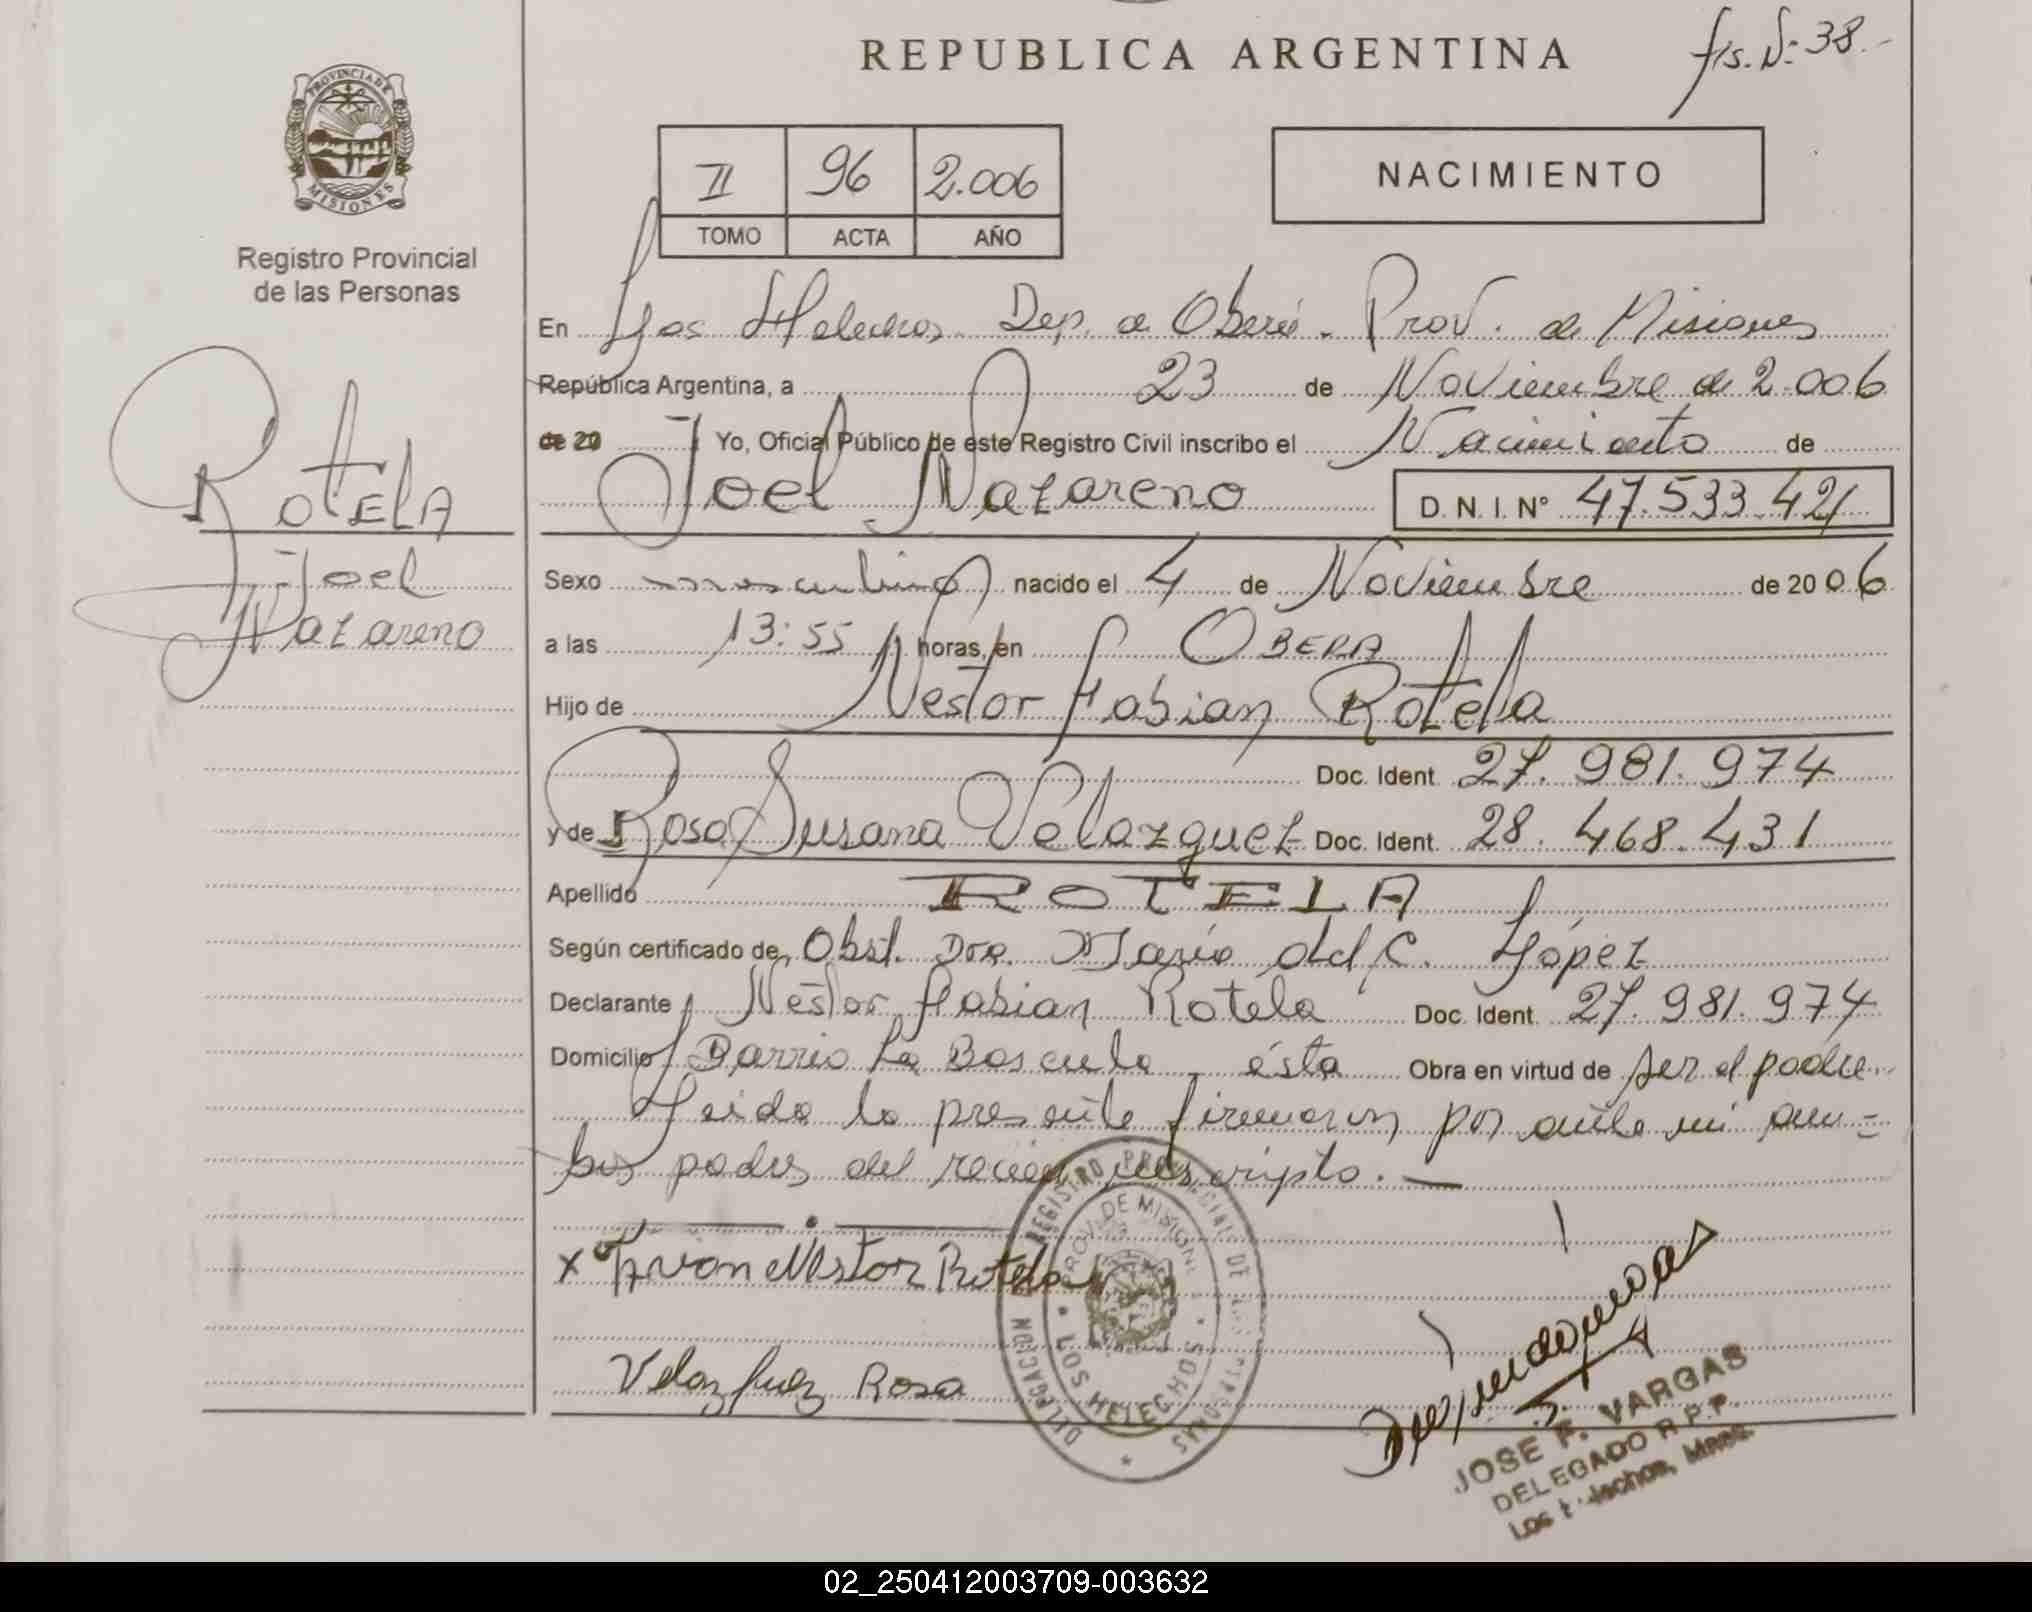 REPUBLICA ARGENTINA
fls. Nº 38.-
PROVINCIA DE MISIONES
Registro Provincial
de las Personas
II 96 2.006
TOMO ACTA AÑO
NACIMIENTO
ROTELA
Joel
Nazareno
En Los Helechos. Dep. de Oberá - Prov. de Misiones
República Argentina, a 23 de Noviembre de 2.006
de 20 Yo, Oficial Público de este Registro Civil inscribo el Nacimiento de
Joel Nazareno D. N. I. N° 47.533.421
Sexo masculino nacido el 4 de Noviembre de 2006
a las 13:55 horas, en OBERA
Hijo de Nestor Fabian Rotela
Doc. Ident. 27.981.974
y de Rosa Susana Velazquez Doc. Ident. 28.468.431
Apellido ROTELA
Según certificado de Obst. Dra. María del C. López
Declarante Néstor Fabian Rotela Doc. Ident. 27.981.974
Domicilio Barrio La Bascula - ésta Obra en virtud de ser el padre.
Leida la presente firmaron por ante mi am=
bos padres del recien inscripto.-
x Nestor Rotela
Velazquez Rosa
REGISTRO PROVINCIAL DE LAS PERSONAS
DELEGACION
PROV. DE MISIONES
LOS HELECHOS
JOSE F. VARGAS
DELEGADO R.P.P.
Los Helechos, Mnes.
02_250412003709-003632